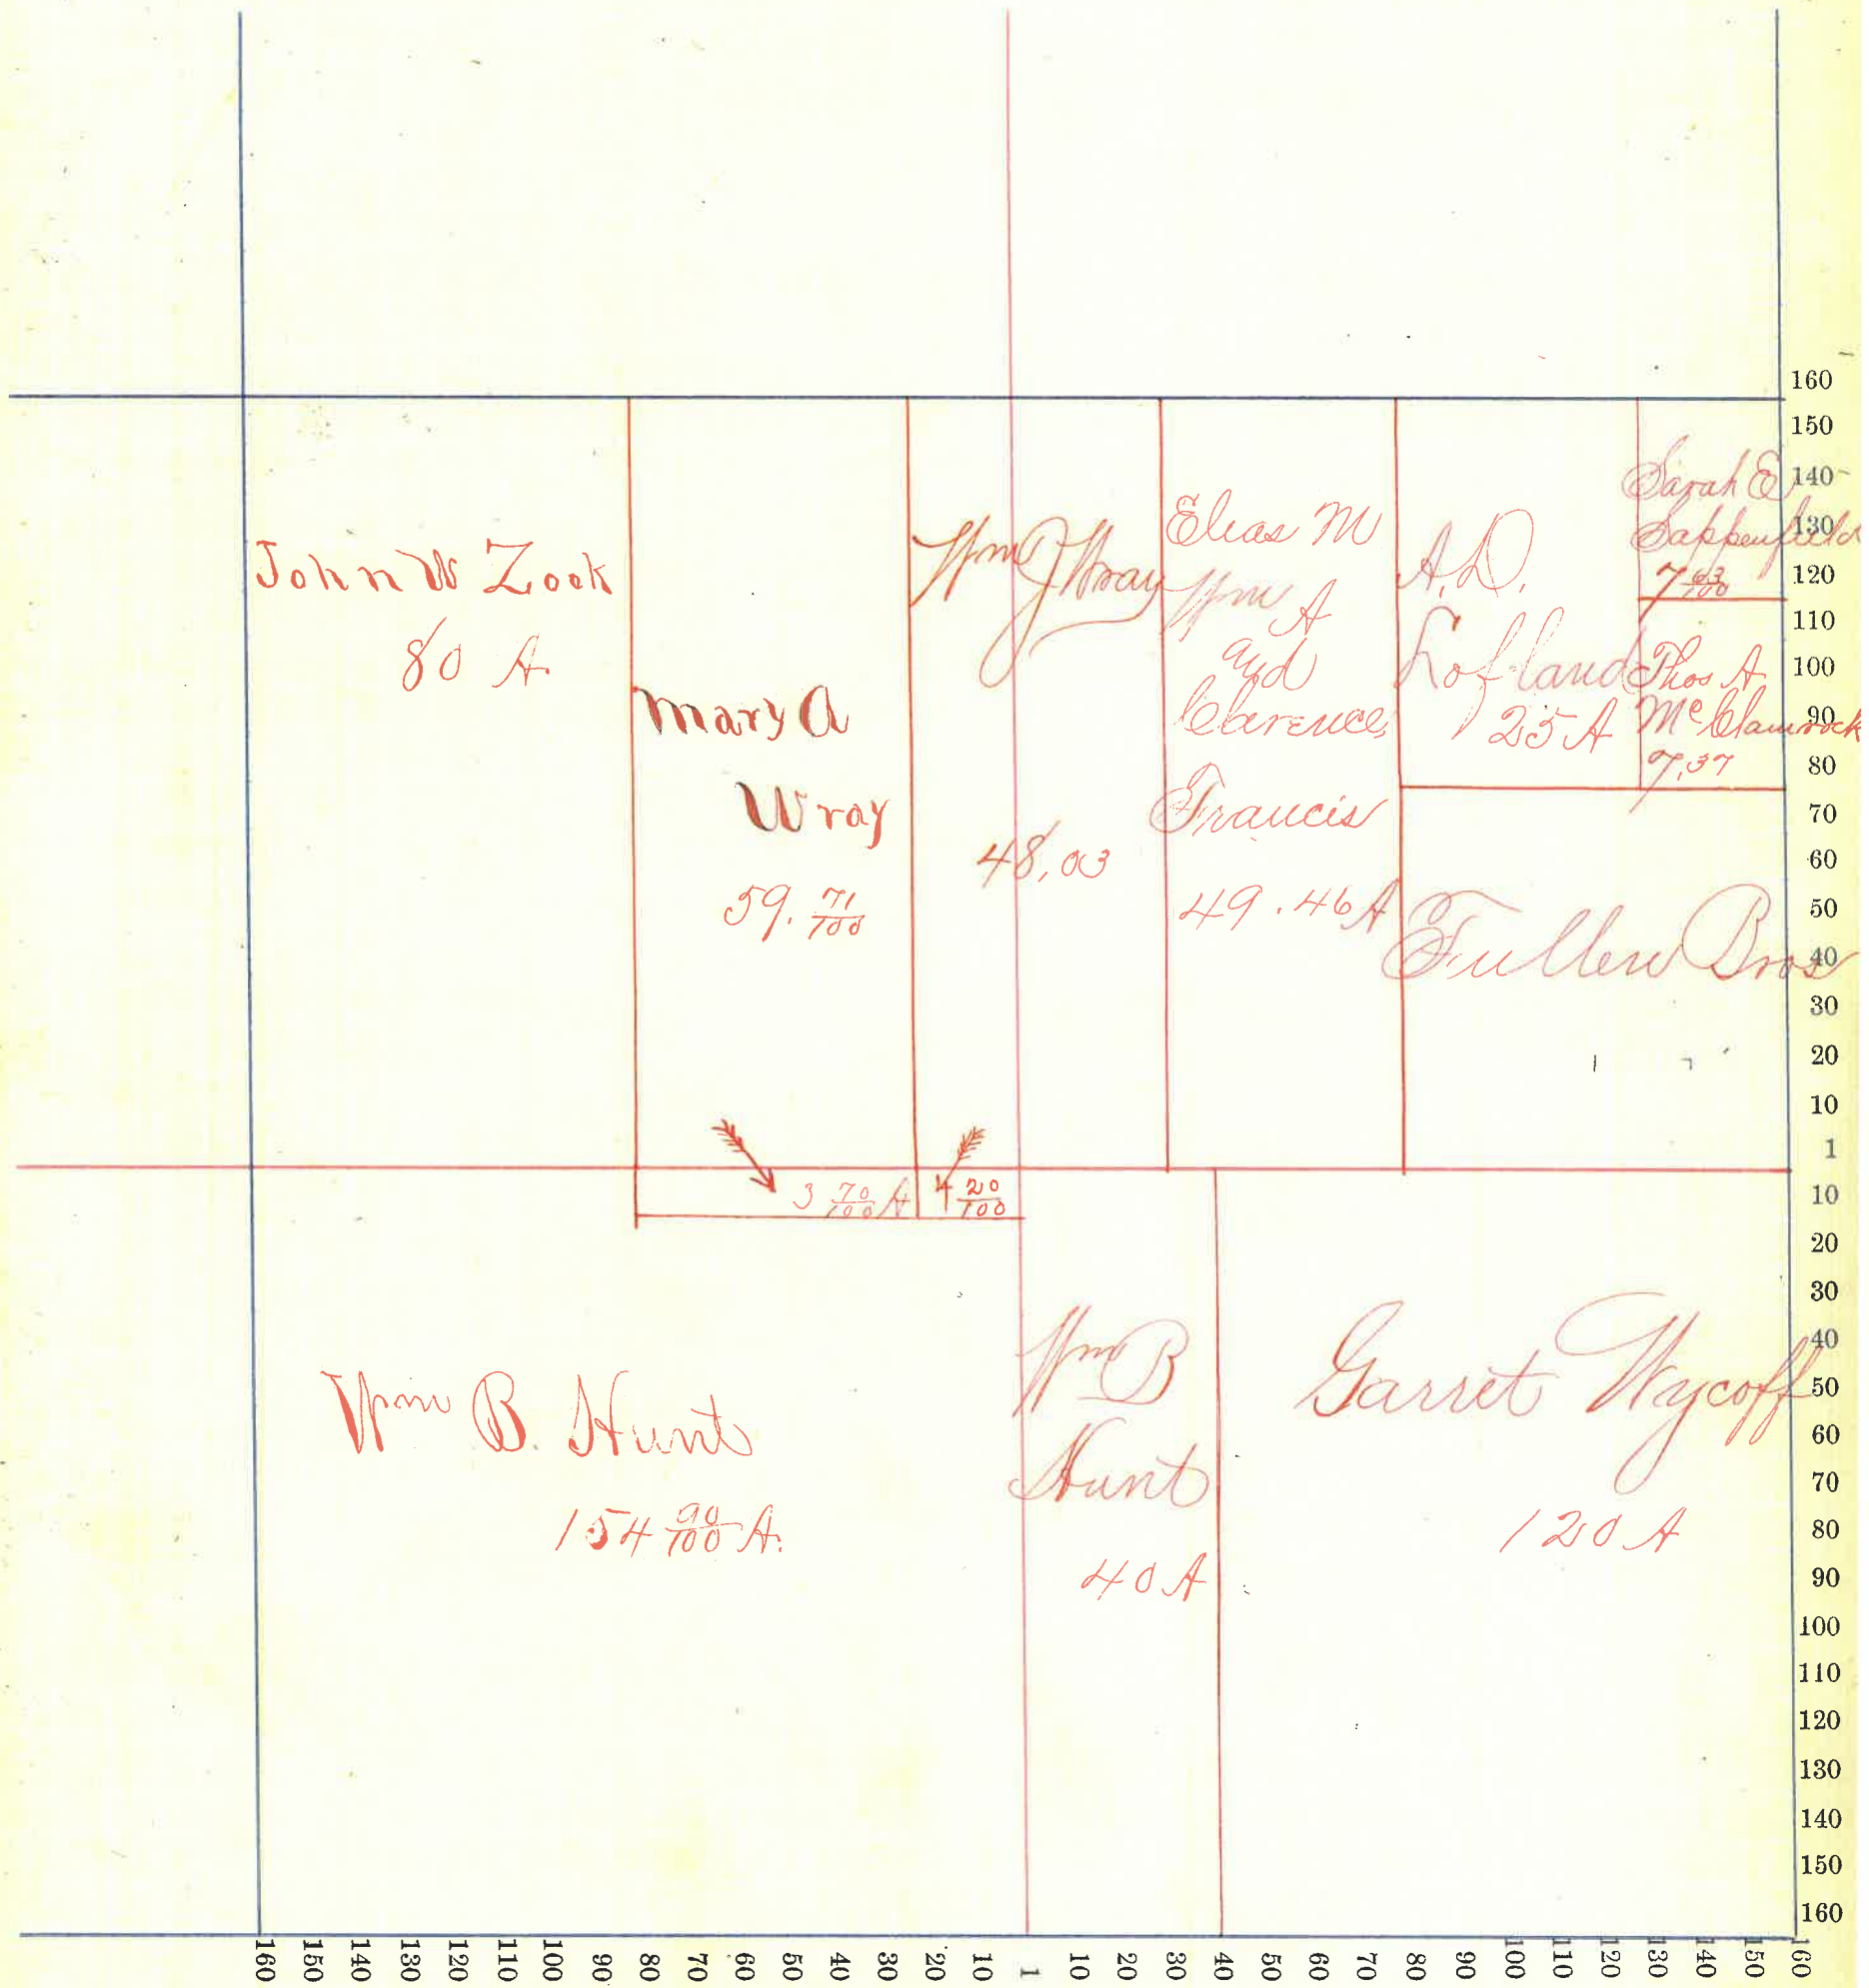 John W Zook
80 A.
Mary A
Wray
59. 71/100
Wm J Wray
48,03
Elias M
Wm A
and
Clarence
Francis
49.46 A
A.D.
Lofland
25 A
Sarah E
Sappenfield
7 63/100
Thos A.
McClamrock
7,37
Fullen Bros
3 70/100 A
4 20/100
Wm B. Hunt
154 90/100 A.
Wm B
Hunt
40 A
Garret Wycoff
120 A
160
150
140
130
120
110
100
90
80
70
60
50
40
30
20
10
1
10
20
30
40
50
60
70
80
90
100
110
120
130
140
150
160
160 150 140 130 120 110 100 90 80 70 60 50 40 30 20 10 1 10 20 30 40 50 60 70 80 90 100 110 120 130 140 150 160